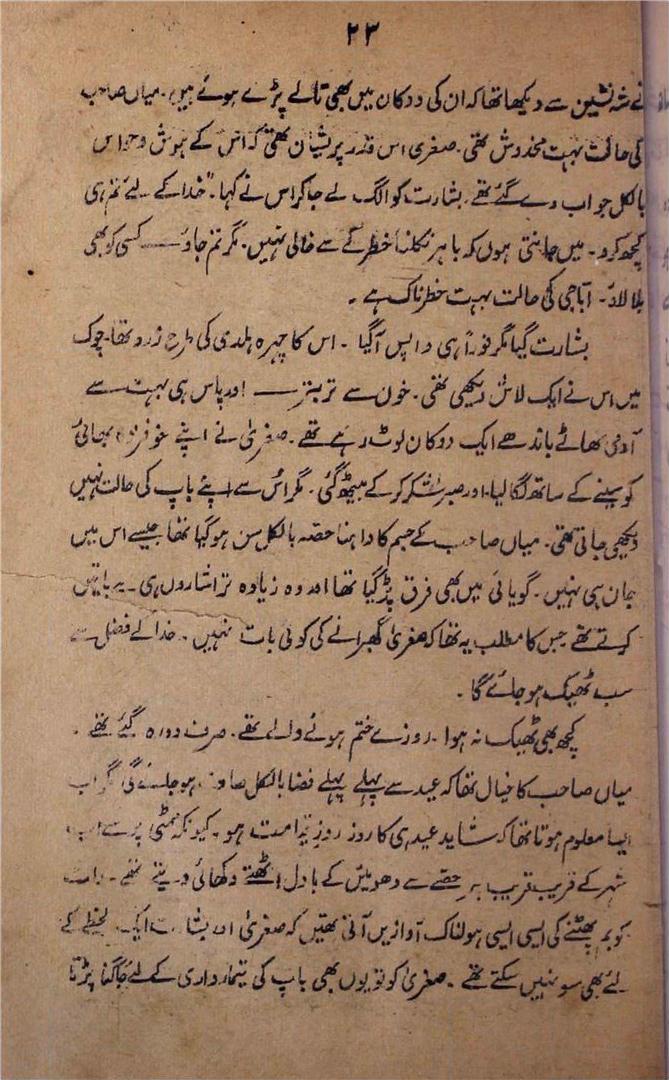 ۲۳
نے شہ نشین سے دیکھا تھا کہ ان کی دوکان میں بھی تالے پڑے ہوئے ہیں۔ میاں صاحب
کی حالت بہت مخدوش تھی۔ صغریٰ اس قدر پریشان تھی کہ اس کے ہوش و حواس
بالکل جواب دے گئے تھے۔ بشارت کو الگ لے جا کر اس نے کہا۔ "خدا کے لئے تم ہی
کچھ کرو۔ میں جانتی ہوں کہ باہر نکلنا خطرے سے خالی نہیں۔ مگر تم جاؤ —— کسی کو بھی
بلا لاؤ۔ ابا جی کی حالت بہت خطرناک ہے۔
بشارت گیا مگر فوراً ہی واپس آگیا۔ اس کا چہرہ ہلدی کی طرح زرد تھا۔ چوک
میں اس نے ایک لاش دیکھی تھی۔ خون سے تربتر —— اور پاس ہی بہت سے
آدمی ٹھاٹے باندھے ایک دوکان لوٹ رہے تھے۔ صغریٰ نے اپنے خوفزدہ بھائی
کو سینے کے ساتھ لگا لیا۔ اور صبر شکر کر کے بیٹھ گئی۔ مگر اس سے اپنے باپ کی حالت نہیں
دیکھی جاتی تھی۔ میاں صاحب کے جسم کا داہنا حصہ بالکل سن ہو گیا تھا جیسے اس میں
جان ہی نہیں۔ گویائی میں بھی فرق پڑ گیا تھا اور وہ زیادہ تر اشاروں ہی سے باتیں
کرتے تھے جس کا مطلب یہ تھا کہ صغریٰ گھبرانے کی کوئی بات نہیں۔ خدا کے فضل سے
سب ٹھیک ہو جائے گا۔
کچھ بھی ٹھیک نہ ہوا۔ روزے ختم ہونے والے تھے۔ صرف دو رہ گئے تھے۔
میاں صاحب کا خیال تھا کہ عید سے پہلے پہلے فضا بالکل صاف ہو جائے گی مگر اب
ایسا معلوم ہوتا تھا کہ شاید عید ہی کا روز روزِ قیامت ہو۔ کیونکہ ممٹی پر سے اب
شہر کے قریب قریب ہر حصے سے دھوئیں کے بادل اٹھتے دکھائی دیتے تھے۔ رات
کو بم پھٹنے کی ایسی ایسی ہولناک آوازیں آتی تھیں کہ صغریٰ اور بشارت ایک لحظے کے
لئے بھی سو نہیں سکتے تھے۔ صغریٰ کو تو یوں بھی باپ کی تیمارداری کے لئے جاگنا پڑتا